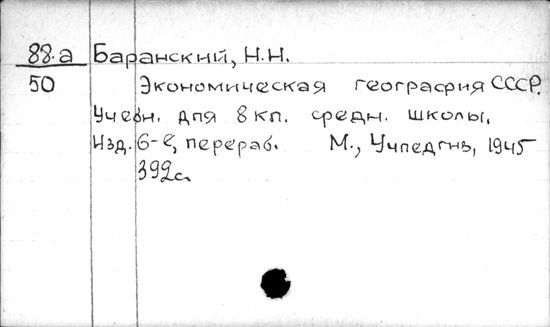 88.а Баранский, Н.Н.
50 Экономическая география СССР.
Учебн. для 8 кл. средн. школы.
Изд. 6-е, перераб. М., Учпедгиз, 1945
392с.